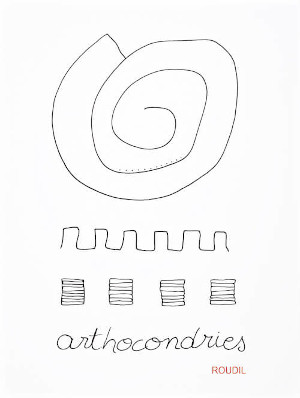 arthocondries
ROUDIL